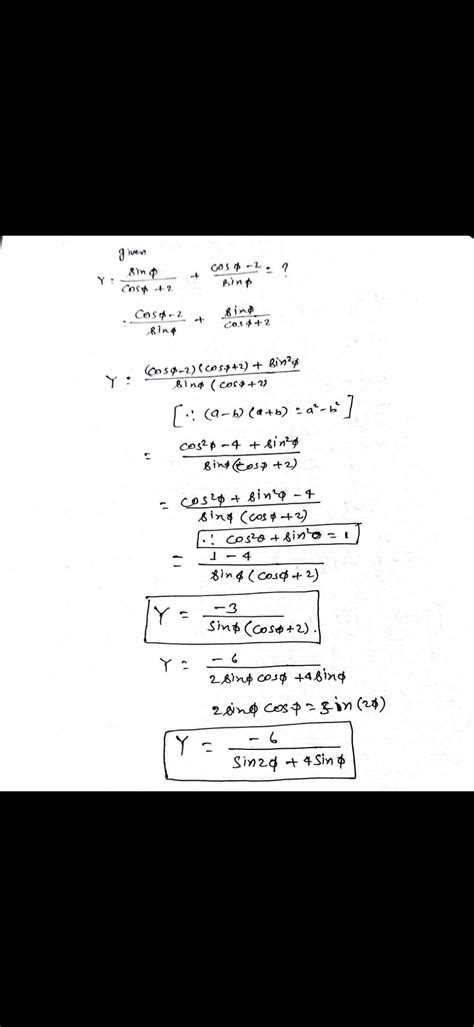 given
Y : sinφ / cosφ +2 + cosφ-2 / sinφ = ?
· cosφ-2 / sinφ + sinφ / cosφ+2
Y = (cosφ-2)(cosφ+2) + sin²φ / sinφ (cosφ+2)
[∵ (a-b)(a+b) = a²-b²]
= cos²φ - 4 + sin²φ / sinφ(cosφ +2)
= cos²φ + sin²φ - 4 / sinφ (cosφ+2)
∵ cos²θ + sin²θ = 1
= 1 - 4 / sinφ (cosφ+2)
Y = -3 / sinφ (cosφ+2).
Y = -6 / 2sinφ cosφ +4sinφ
2sinφ cosφ = sin(2φ)
Y = -6 / sin2φ + 4sinφ